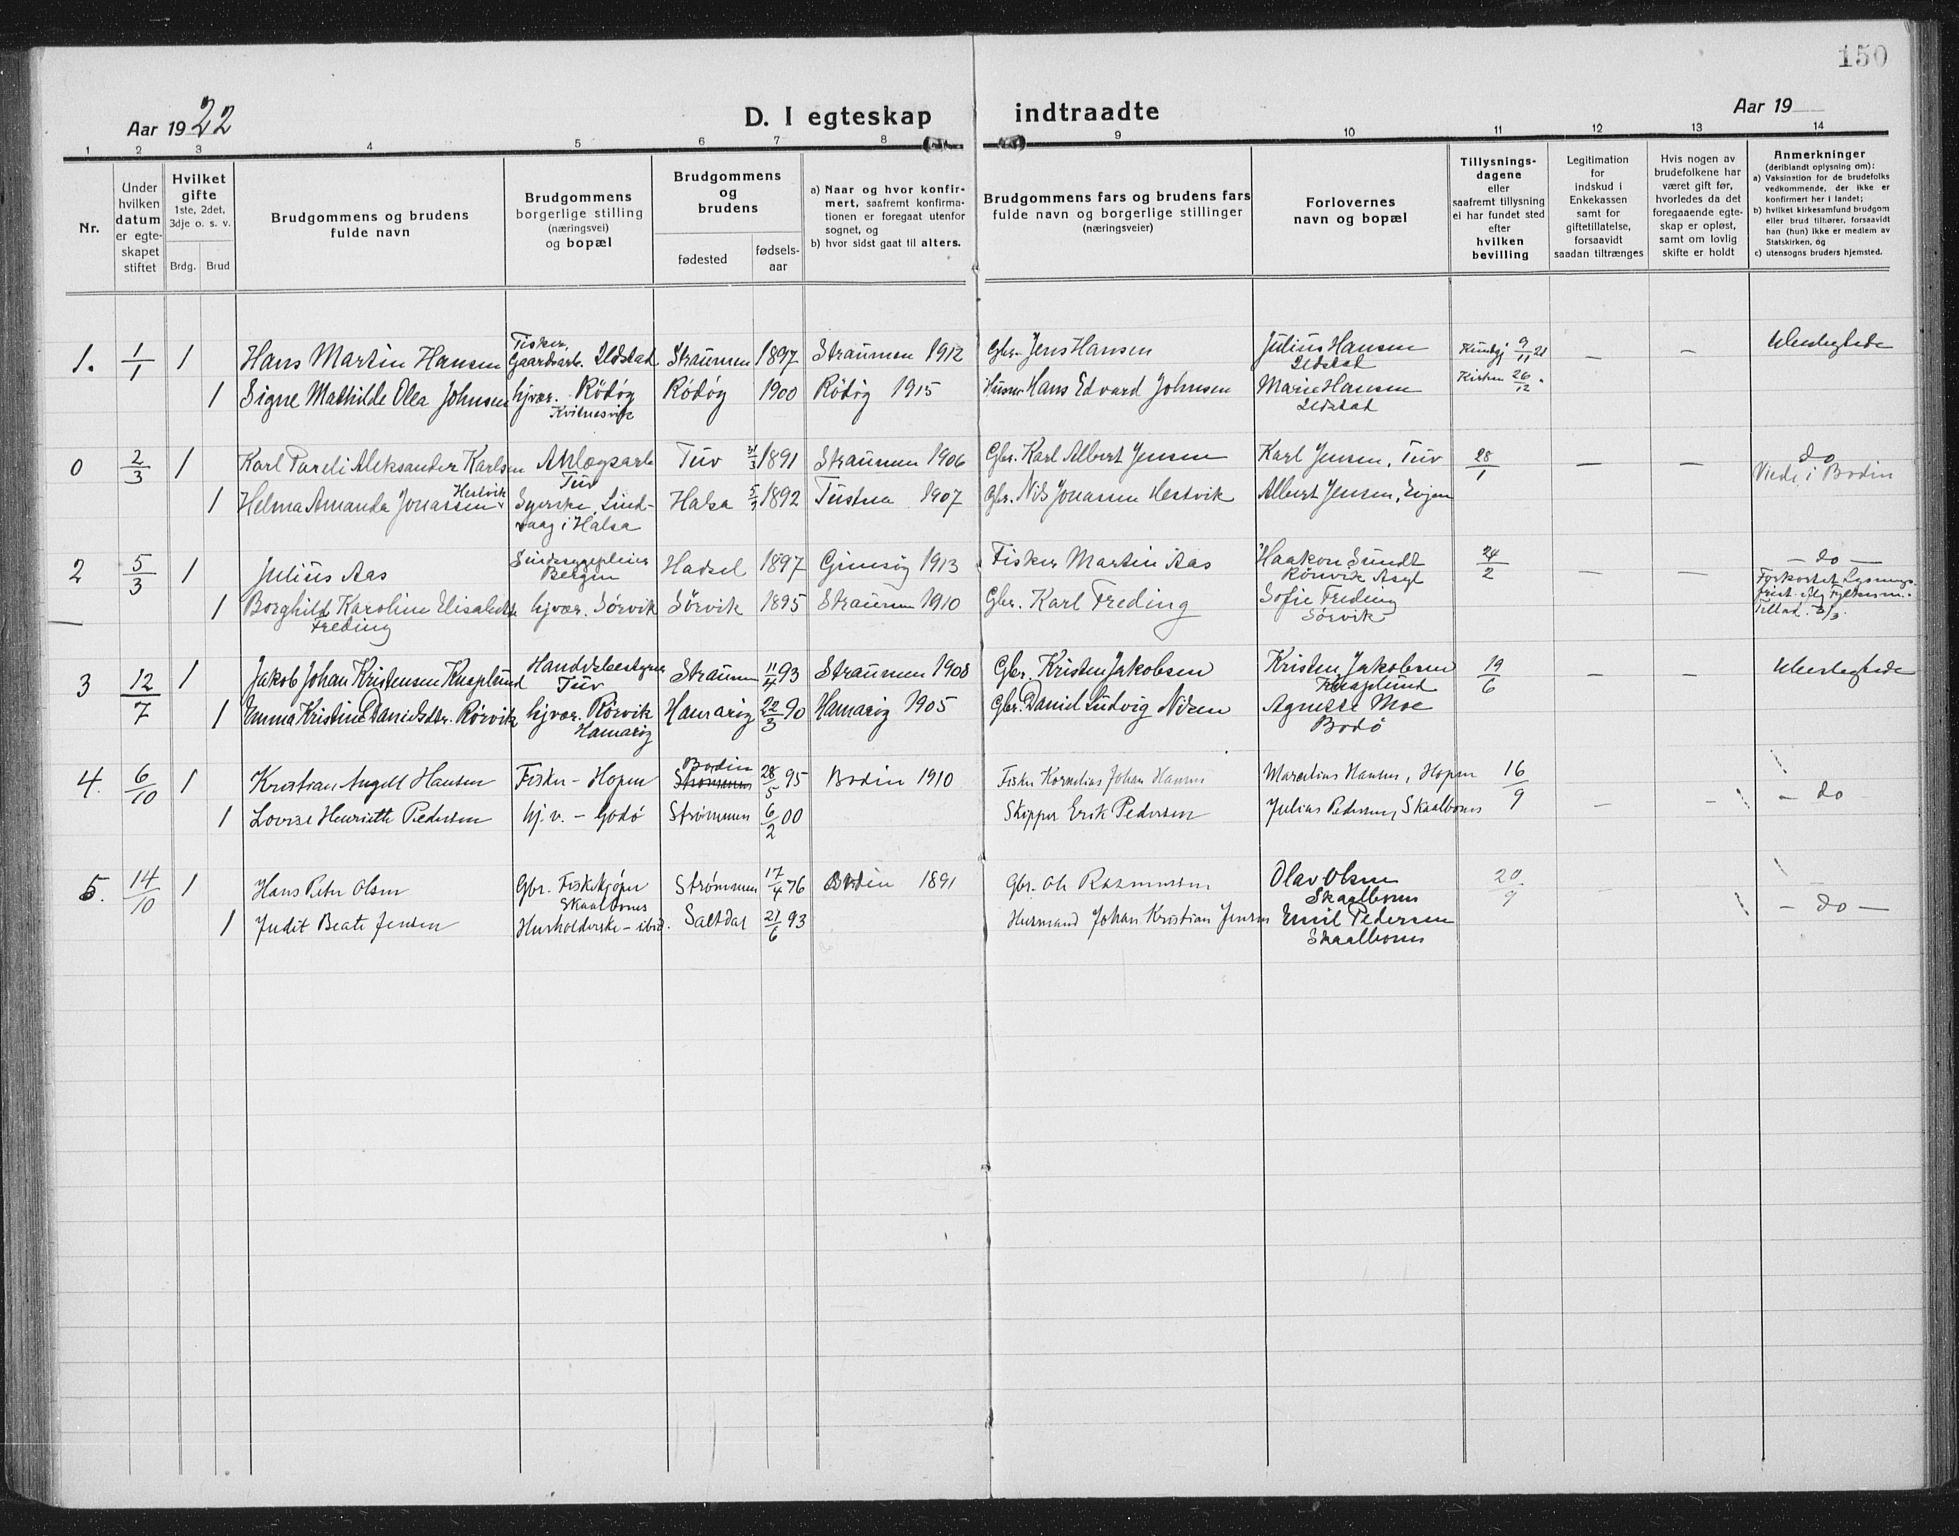 150
Aar 1922
D. I egteskap
indtraadte
Aar 19
1 2 3 4 5 6 7 8 9 10 11 12 13 14
Nr.
Under hvilken datum er egteskapet stiftet
Hvilket gifte
1ste, 2det, 3dje o. s. v.
Brdg. Brud
Brudgommens og brudens
fulde navn
Brudgommens
borgerlige stilling
(næringsvei)
og bopæl
Brudgommens
og
brudens
fødested
fødsels-
aar
a) Naar og hvor konfir-
mert, saafremt konfirma-
tionen er foregaat utenfor
sognet, og
b) hvor sidst gaat til alters.
Brudgommens fars og brudens fars
fulde navn og borgerlige stillinger
(næringsveier)
Forlovernes
navn og bopæl
Tillysnings-
dagene
eller
saafremt tillysning
ei har fundet sted
efter
hvilken
bevilling
Legitimation
for
indskud i
Enkekassen
samt for
giftetillatelse,
forsaavidt
saadan tiltrænges
Hvis nogen av
brudefolkene har
været gift før,
hvorledes da det
foregaaende egte-
skap er opløst,
samt om lovlig
skifte er holdt
Anmerkninger
(deriblandt oplysning om):
a) Vaksination for de brudefolks
vedkommende, der ikke er
konfirmert her i landet;
b) hvilket kirkesamfund brudgom
eller brud tilhører, forsaavidt
han (hun) ikke er medlem av
Statskirken, og
c) utensogns bruders hjemsted.
1. 1/1 1 Hans Martin Hansen Fisker, Gaardsarb. Ildstad Straumen 1897 Straumen 1912 Gbr. Jens Hansen Julius Hansen Ildstad 9/11 21 – – Ubeslegtede
1 Signe Mathilde Olea Johnsen hjvær. Rödöy Kvitnesvik Rödöy 1900 Rödöy 1915 Husm Hans Edvard Johnsen Marie Hansen Ildstad Kirken 26/12
0 2/3 1 Karl Pareli Aleksander Karlsen Anlægsarb Tuv Tuv 1891 Straumen 1906 Gbr. Karl Albert Jensen Karl Jensen, Tuv 28/1 – – do Viede i Bodin
1 Helma Amanda Jonassen Hestvik Syerske, Lindvaag i Halsa Halsa 1892 Tustna 1907 Gbr. Nils Jonassen Hestvik Albert Jensen, Evjen
2 5/3 1 Julius Aas Sindssygepleier Bergen Hadsel 1897 Gimsöy 1913 Fisker Martin Aas Haakon Sundt Rönvik Asyl 24/2 – – – do –
1 Borghild Karoline Elisabeth Freding hjvær. Sörvik Sörvik 1895 Straumen 1910 Gbr. Karl Freding Sofie Freding Sörvik
3 12/7 1 Jakob Johan Kristensen Knaplund Handelsbestyrer Tuv Straumen 11/4 93 Straumen 1908 Gbr. Kristen Jakobsen Kristen Jakobsen Knaplund 19/6 – – Ubeslegtede
1 Emma Kristine Danielsdtr. Rörvik hjvær. Rörvik Hamaröy Hamaröy 22/3 90 Hamaröy 1905 Gbr. Daniel Ludvig Nilsen Agnette Moe Bodö
4. 6/10 1 Kristian Angell Hansen Fisker – Hopen Bodin Strømmen 28/5 95 Bodin 1910 Fisker Kornelius Johan Hansen Marselius Hansen, Hopen 16/9
1 Lovise Henriette Pedersen hj.v. – Godö Strømmen 6/2 00 Skipper Erik Pedersen Julius Pedersen, Skaalbones – – – do –
5. 14/10 1 Hans Peter Olsen Gbr. Fiskekjøper Skaalbones Strømmen 17/4 76 Bodin 1891 Gbr. Ole Rasmussen Olav Olsen Skaalbones 20/9
1 Judit Beate Jensen Husholderske – ibid. Saltdal 21/6 93 Husmand Johan Kristian Jensen Emil Pedersen Skaalbones – do –